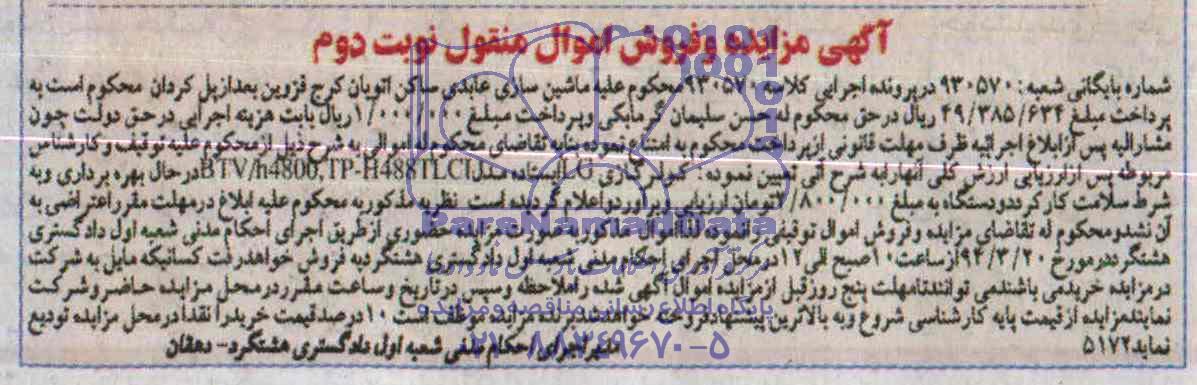 آگهی مزایده وفروش اموال منقول نوبت دوم
شماره بایگانی شعبه: ۹۳۰۵۷۰ درپرونده اجرایی کلاسه ۹۳۰۵۷۰محکوم علیه ماشین سازی عابدی ساکن اتوبان کرج قزوین بعدازپل کردان محکوم است به
پرداخت مبلغ ۴۹/۳۸۵/۶۳۴ ریال درحق محکوم له حسن سلیمان گرمابکی وپرداخت مبلغ ۱/۰۰۰/۰۰۰ریال بابت هزینه اجرایی درحق دولت چون
مشارالیه پس ازابلاغ اجرائیه ظرف مهلت قانونی ازپرداخت محکوم به امتناع نموده بنابه تقاضای محکوم له اموالی به شرح ذیل ازمحکوم علیه توقیف وکارشناس
مربوطه پس ازارزیابی ارزش کلی آنهارابه شرح آتی تعیین نموده: کولرگازی LGایستاده مدل BTV/h4800,TP-H488TLCIدرحال بهره برداری وبه
شرط سلامت کارکرددودستگاه به مبلغ /۸۰۰/۰۰۰تومان ارزیابی وبرآوردواعلام گردیده است نظریه مذکوربه محکوم علیه ابلاغ درمهلت مقرراعتراضی به
آن نشدومحکوم له تقاضای مزایده وفروش اموال توقیفی رانموده لذااموال مذکوربصورت مزایده حضوری ازطریق اجرای احکام مدنی شعبه اول دادگستری
هشتگرددرمورخ ۹۴/۳/۲۰ازساعت۱۰صبح الی۱۲درمحل اجرای احکام مدنی شعبه اول دادگستری هشتگردبه فروش خواهدرفت کسانیکه مایل به شرکت
درمزایده خریدمی باشندمی توانندتامهلت پنج روزقبل ازمزایده اموال آگهی شده راملاحظه وسپس درتاریخ وساعت مقرردرمحل مزایده حاضروشرکت
نمایندمزایده ازقیمت پایه کارشناسی شروع وبه بالاترین پیشنهادفروخته برنده مزایده موظف است ۱۰درصدقیمت خریدرا نقدادرمحل مزایده تودیع
نماید۵۱۷۲
مدیراجرای احکام مدنی شعبه اول دادگستری هشتگرد- دهقان
ParsNamadData
پایگاه اطلاع رسانی مناقصه و مزایده
۰۲۱-۸۸۳۴۹۶۷۰-۵